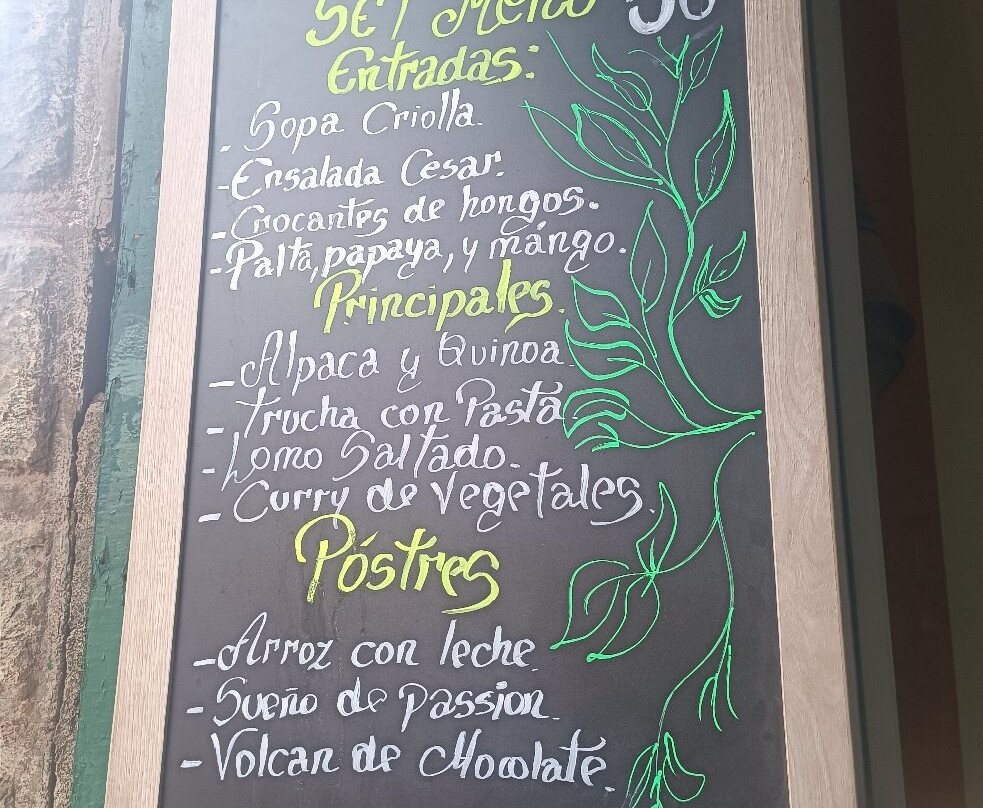 SET Menú 50
Entradas:
- Sopa Criolla.
- Ensalada Cesar.
- Crocantes de hongos.
- Palta, papaya, y mángo.
Principales.
- Alpaca y Quinoa
- Trucha con Pasta
- Lomo Saltado.
- Curry de vegetales.
Póstres
- Arroz con leche.
- Sueño de passion.
- Volcan de Chocolate.